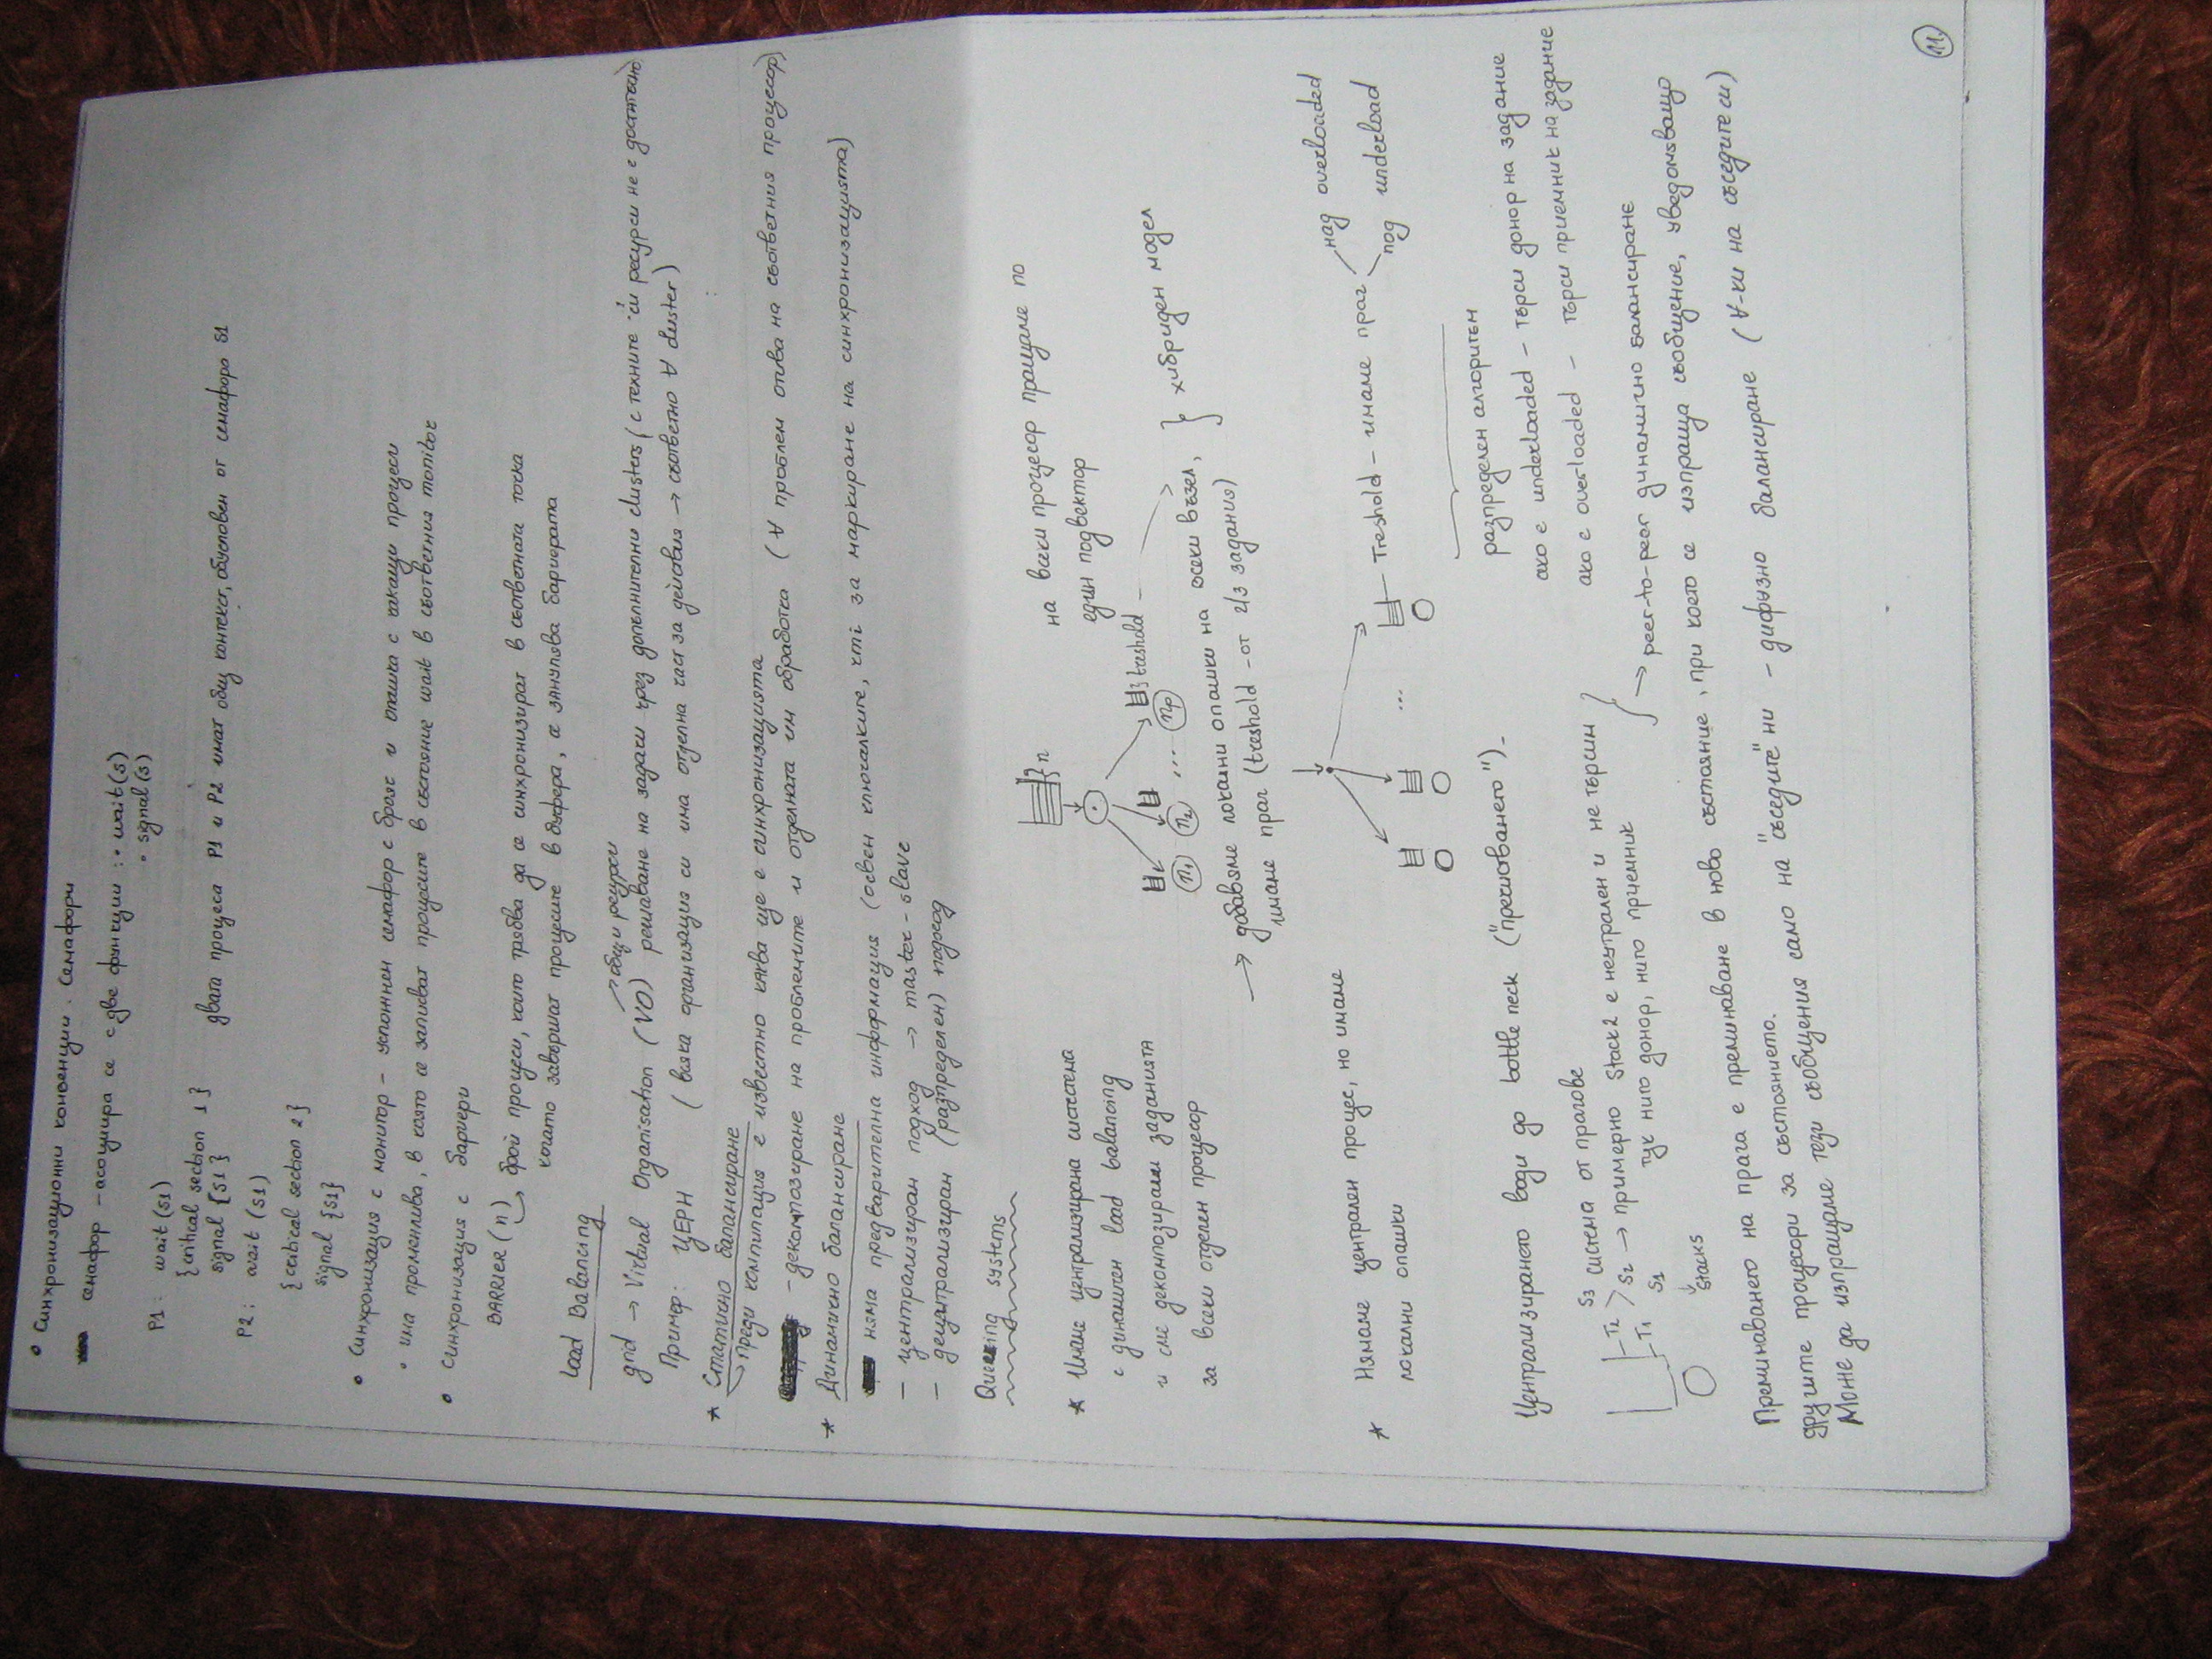 • Синхронизационни конвенции. Семафори
семафор - асоциира се с две функции : • wait(s)
• signal(s)
P1: wait(s1)
{critical section 1}
signal {s1}
двата процеса P1 и P2 имат общ контекст, обусловен от семафора s1
P2: wait(s1)
{critical section 2}
signal {s1}
• Синхронизация с монитор - усложнен семафор с брояч и опашка с чакащи процеси
• има променлива, в която се записват процесите в състояние wait в съответния monitor
• Синхронизация с бариери
BARRIER(n)
брой процеси, които трябва да се синхронизират в съответната точка
когато завършат процесите в буфера, се занулява бариерата
Load Balancing
→ общи ресурси
grid → Virtual Organisation (VO) решаване на задачи чрез допълнителни clusters (с техните си ресурси не е достатъчно)
Пример: ЦЕРН (всяка организация си има отделна част за действия → съответно ∀ cluster)
* Статично балансиране
→ преди компилация е известно каква ще е синхронизацията
- декомпозиране на проблемите и отделната им обработка (∀ проблем отива на съответния процесор)
* Динамично балансиране
няма предварителна информация (освен ключалките, кти за маркиране на синхронизацията)
- централизиран подход → master-slave
- децентрализиран (разпределен) подход
Queuing systems
* Имаме централизирана система
с динамичен load balancing
и сме декомпозирали заданията
за всеки отделен процесор
}n
n1 n2 .... np
}treshold
на всеки процесор пращаме по
един подвектор
→ добавяме локални опашки на всеки възел,
имаме праг (treshold - от 2/3 задания)
} хибриден модел
* Нямаме централен процес, но имаме
локални опашки
...
Treshold - имаме праг
над overloaded
под underload
разпределен алгоритъм
ако е underloaded - търси донор на задание
ако е overloaded - търси приемник на задание
Централизирането води до bottle neck ("прекисованего").
T2
T1
S3 система от прагове
S2 → примерно Stack 2 е неутрален и не търсим
S1 тук нито донор, нито приемник
Stacks
} → peer-to-peer динамично балансиране
Преминаването на прага е преминаване в ново състояние, при което се изпраща съобщение, уведомяващо
другите процесори за състоянието.
Може да изпращаме тези съобщения само на "съседите" ни - дифузно балансиране (∀-ки на съседите си)
11